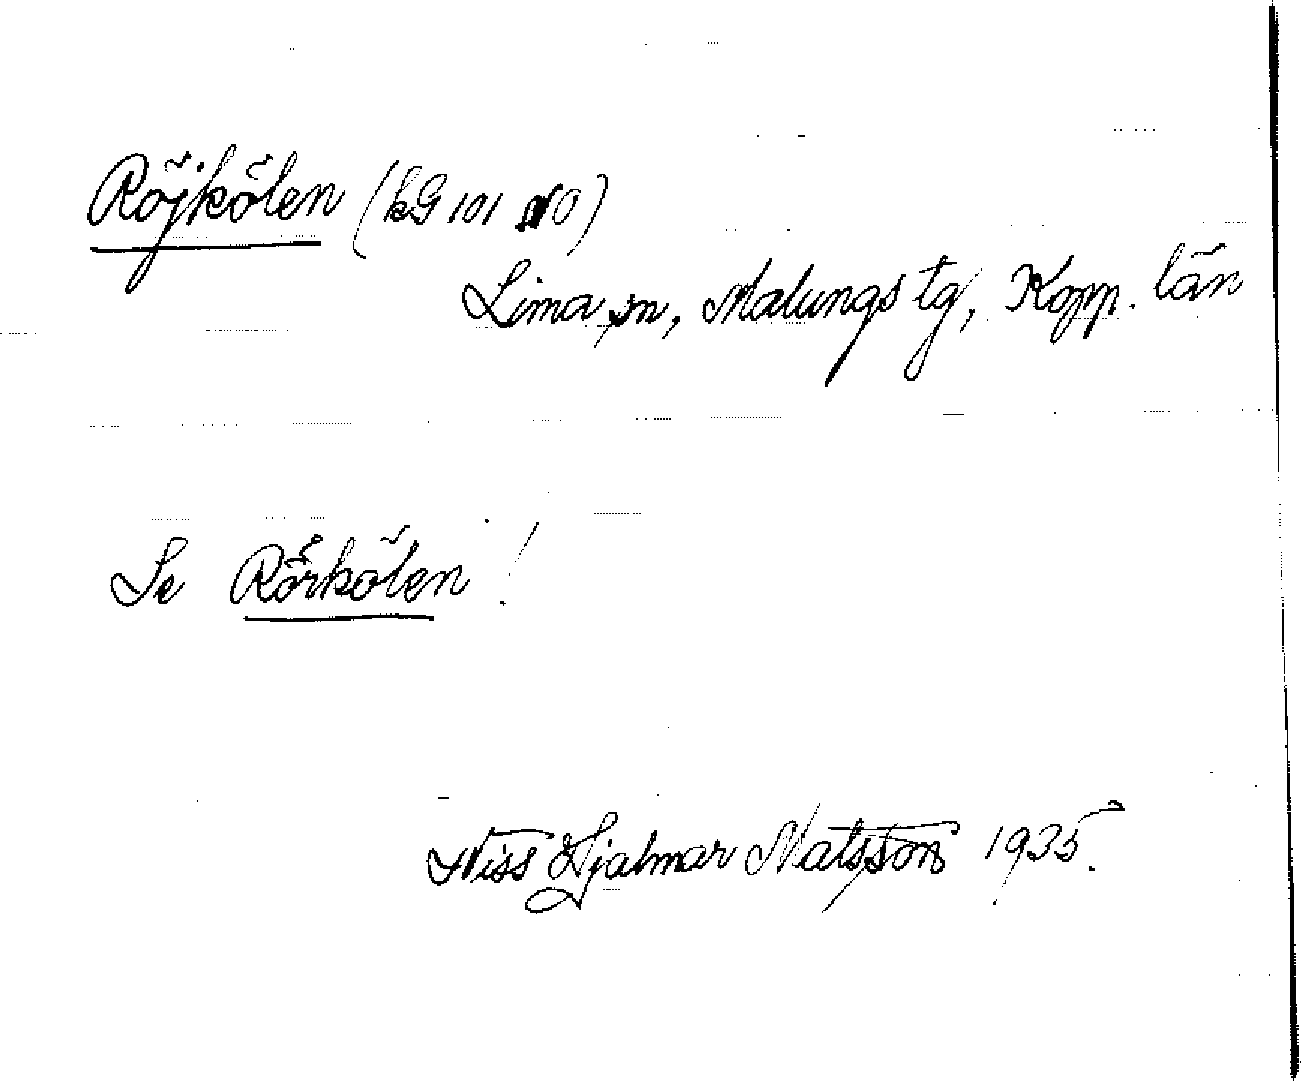 Röjkölen (kG 101 NO)
Lima sn, Malungs tg, Kopp. län
Se Rörkölen!
Niss Hjalmar Matsson 1935.